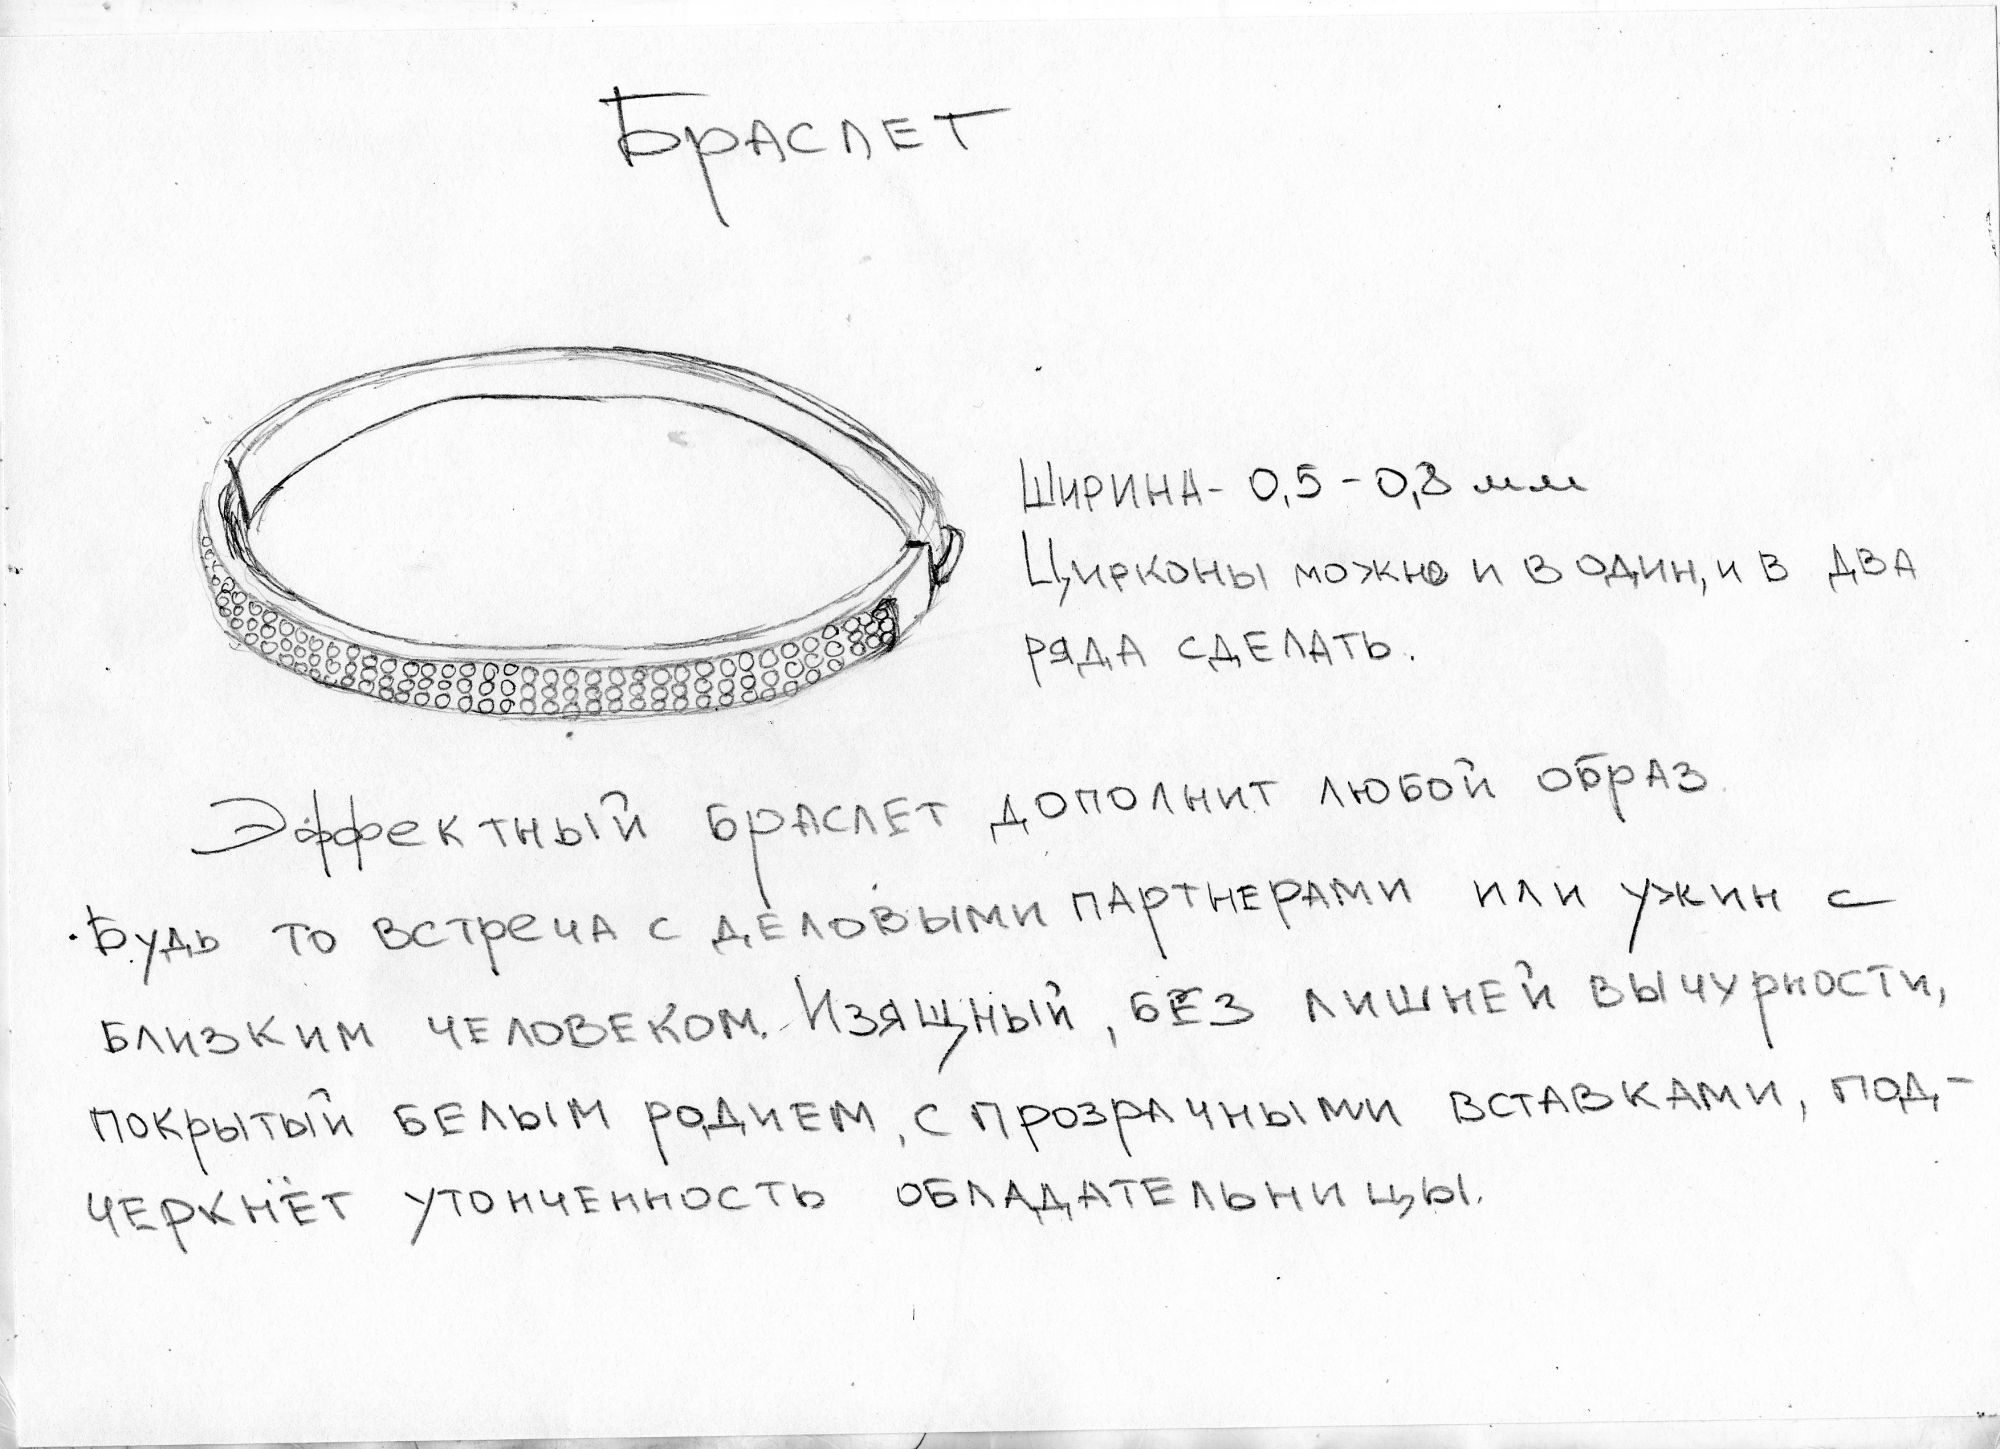 Браслет
Ширина - 0,5 - 0,8 мм
Цирконы можно и в один, и в два
ряда сделать.
Эффектный браслет дополнит любой образ.
Будь то встреча с деловыми партнерами или ужин с
близким человеком. Изящный, без лишней вычурности,
покрытый белым родием, с прозрачными вставками, под-
черкнёт утонченность обладательницы.